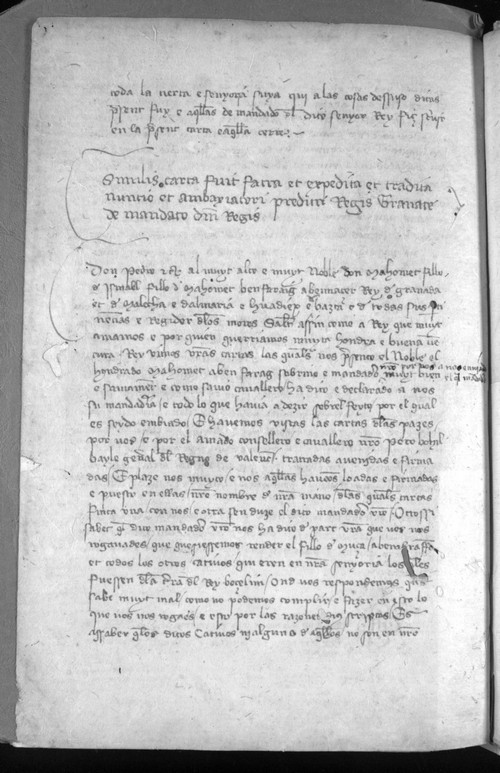 toda la tierra e senyoria suya qui a las cosas dessuso ditas
p̃sent fuy e aq̃llas de mandado del dito senyor Rey fiz scriv̾
en la p̃sent carta e aq̃lla cerre
Similis carta fuit facta et expedita et tradita
nuncio et ambaxiatori predicti Regis Granate
de mandato dñi Regis
Don Pedro &c̃ al muyt alto e muyt Noble don Mahomet fillo
d Ismael fillo d Mahomet ben farag abennacer Rey d granada
et d Malecha e dalmaria e Huadiex e bazta e d todas sus p̃ti
nẽcias e Regidor dlos moros Salut assin como a Rey que muyt
amamos e por quien querriamos muyta hondra e buena uẽ
tura Rey vimos vr̃as cartas las quals nos p̃sento el Noble el
hondrado Mahomet aben farag sobrino e mandadero vr̃o muyt bien
e saviament e como savio cavallero ha dito e declarado a nos
su mandadia e todo lo que havia a dezir sobrel feyto por el qual
es seydo embiado E havemos vistas las cartas dlas pazes
por vos e por el amado consellero e cavallero nr̃o Pero boyl
bayle gen̾al dl Regno de valenc̃ tractadas avenidas e firma
das E plaze nos muyto e nos aq̃llas havemos loadas e firmadas
e puesto en ellas nr̃o nombre d nr̃a mano dlas quals cartas
finca una con nos e otra sen duze el dito mandadero vr̃o Otrossi
sabet q̃l dito mandadero vr̃o nos ha dito d part vr̃a que vos nos
rogavades que quisiessemos render el fillo d Muça
et todos los otros cativos qui eren en nr̃a senyoria los q̃les
fuessen dla tr̃ra dl Rey bocelim Ond vos respondemos quens
sabe muyt mal como no podemos complir e fazer en esto lo
que vos nos rogaes e esto por las razones dius scriptas Es
assaber q̃los ditos Cativos ni alguno d aq̃llos no son en nr̃o